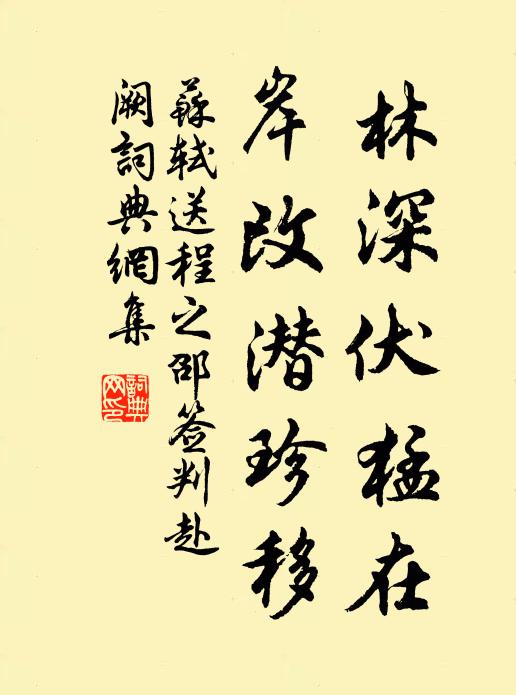 林深伏猛在
岸改潜珍移
蘇軾送程之邵签判赴
阙詞典網集
詞典
网印